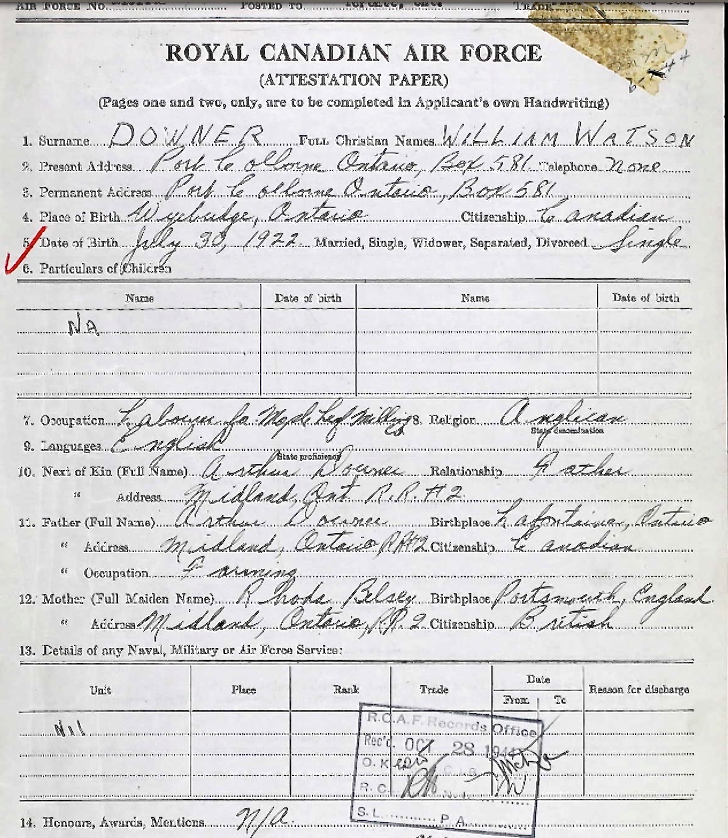 AIR FORCE No. POSTED TO Toronto, Ont. TRADE
ROYAL CANADIAN AIR FORCE
(ATTESTATION PAPER)
(Pages one and two, only, are to be completed in Applicant's own Handwriting)
1. Surname DOWNER Full Christian Names WILLIAM WATSON
2. Present Address Port Colborne Ontario, Box 581 Telephone None
3. Permanent Address Port Colborne Ontario, Box 581
4. Place of Birth Wyebridge, Ontario Citizenship Canadian
5. Date of Birth July 30, 1922 Married, Single, Widower, Separated, Divorced Single
6. Particulars of Children
Name Date of birth Name Date of birth
NA
7. Occupation Labourer for Maple Leaf Milling Co 8. Religion Anglican
State denomination
9. Languages English
State proficiency
10. Next of Kin (Full Name) Arthur Downer Relationship Father
" Address Midland, Ont R.R.#2
11. Father (Full Name) Arthur Downer Birthplace Lafontaine, Ontario
" Address Midland, Ontario R#2 Citizenship Canadian
" Occupation Farming
12. Mother (Full Maiden Name) Rhoda Belsey Birthplace Portsmouth, England
" Address Midland, Ontario, R.R. 2 Citizenship British
13. Details of any Naval, Military or Air Force Service:
Unit Place Rank Trade Date Reason for discharge
From To
Nil
R.C.A.F. Records Office
Rec'd. OCT 28
O.K.
R.C.
S.L. P.A.
14. Honours, Awards, Mentions N/A